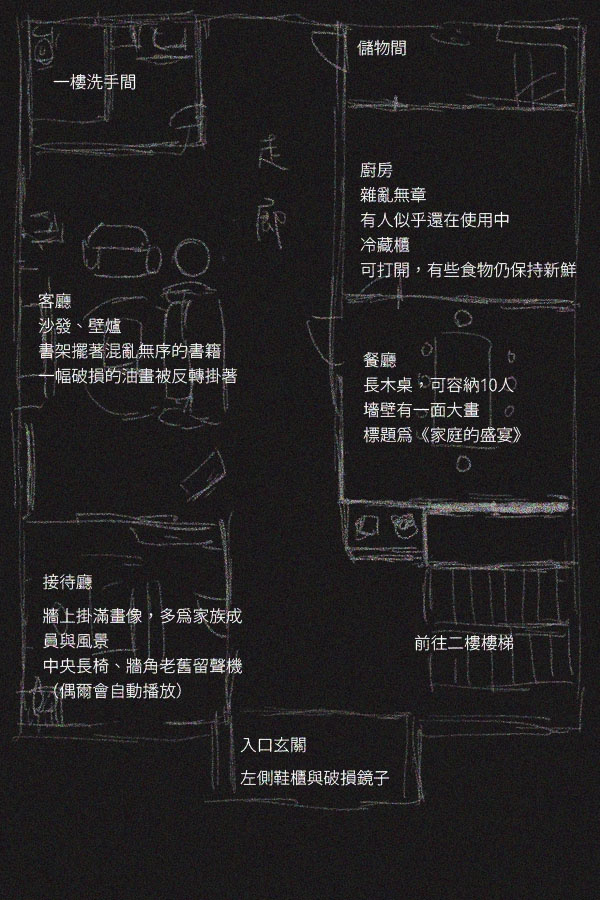 儲物間
一樓洗手間
走廊
廚房
雜亂無章
有人似乎還在使用中
冷藏櫃
可打開，有些食物仍保持新鮮
客廳
沙發、壁爐
書架擺著混亂無序的書籍
一幅破損的油畫被反轉掛著
餐廳
長木桌，可容納10人
墻壁有一面大畫
標題爲《家庭的盛宴》
接待廳
牆上掛滿畫像，多爲家族成
員與風景
中央長椅、牆角老舊留聲機
（偶爾會自動播放）
前往二樓樓梯
入口玄關
左側鞋櫃與破損鏡子